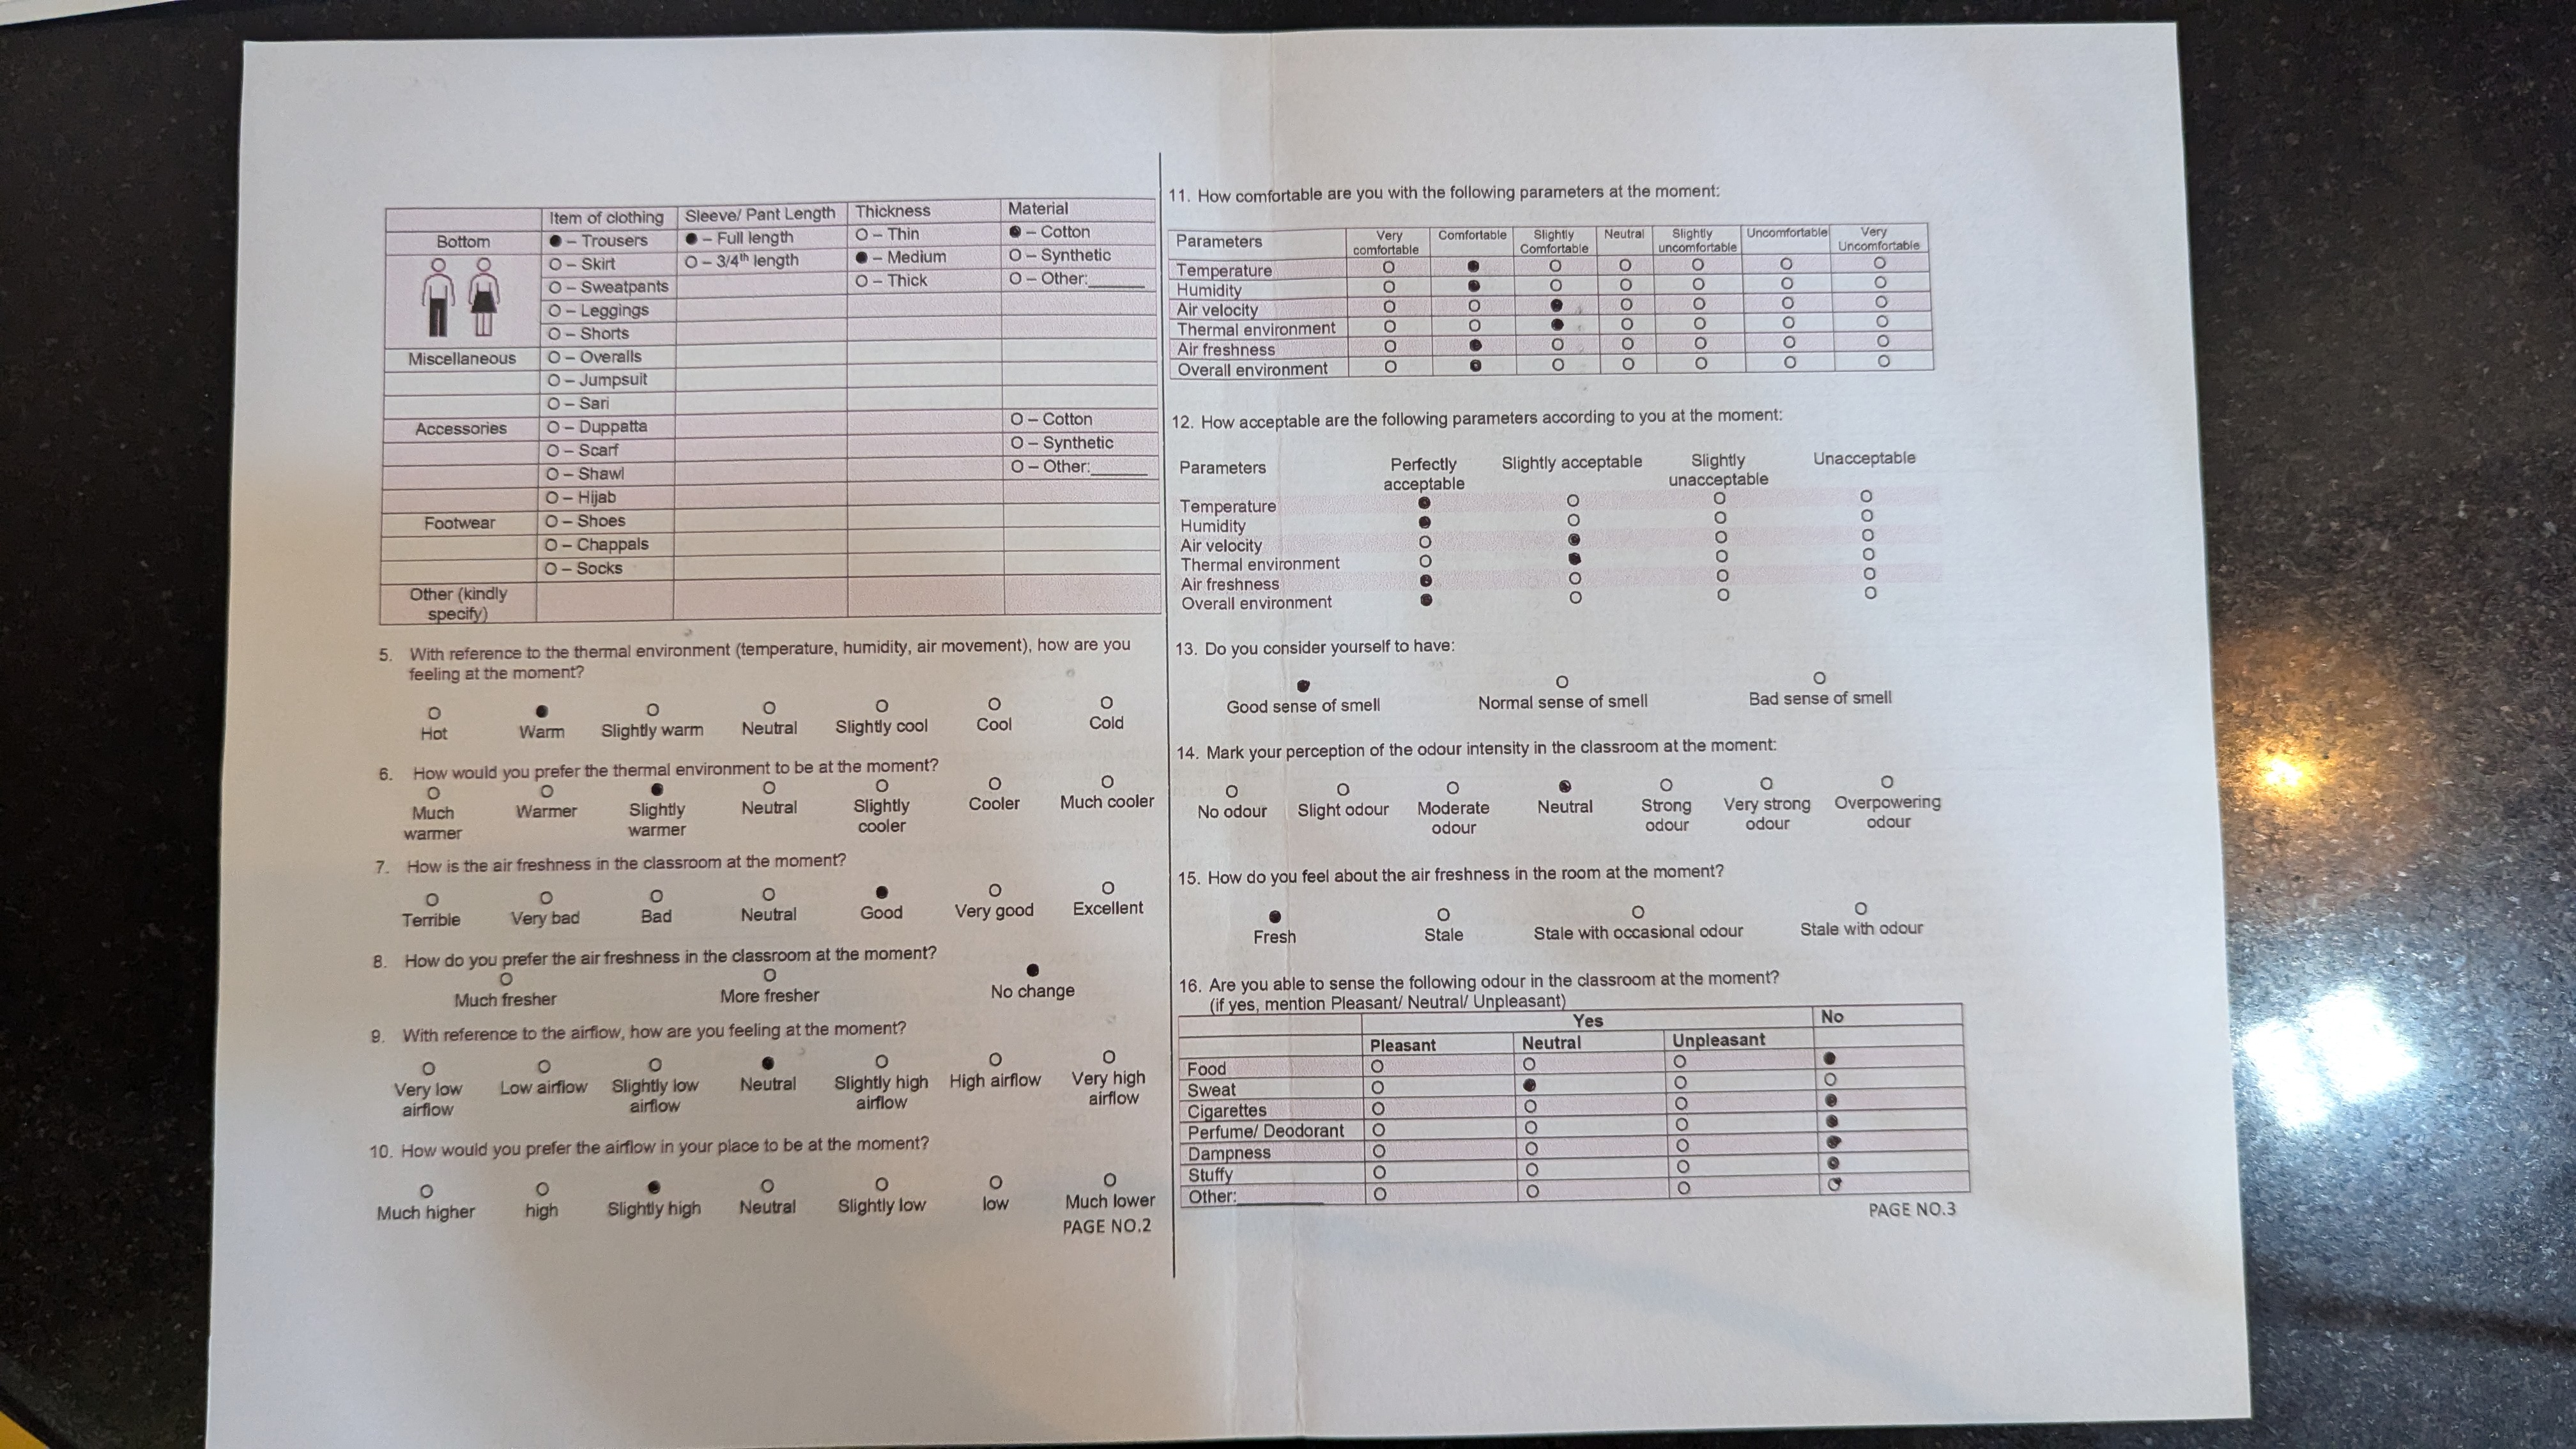 Item of clothing Sleeve/ Pant Length Thickness Material
Bottom ● – Trousers ● – Full length O – Thin ● – Cotton
O – Skirt O – 3/4th length ● – Medium O – Synthetic
O – Sweatpants O – Thick O – Other:______
O – Leggings
O – Shorts
Miscellaneous O – Overalls
O – Jumpsuit
O – Sari
Accessories O – Duppatta O – Cotton
O – Scarf O – Synthetic
O – Shawl O – Other:______
O – Hijab
Footwear O – Shoes
O – Chappals
O – Socks
Other (kindly
specify)
5. With reference to the thermal environment (temperature, humidity, air movement), how are you
feeling at the moment?
O ● O O O O O
Hot Warm Slightly warm Neutral Slightly cool Cool Cold
6. How would you prefer the thermal environment to be at the moment?
O O ● O O O O
Much Warmer Slightly Neutral Slightly Cooler Much cooler
warmer warmer cooler
7. How is the air freshness in the classroom at the moment?
O O O O ● O O
Terrible Very bad Bad Neutral Good Very good Excellent
8. How do you prefer the air freshness in the classroom at the moment?
O O ●
Much fresher More fresher No change
9. With reference to the airflow, how are you feeling at the moment?
O O O ● O O O
Very low Low airflow Slightly low Neutral Slightly high High airflow Very high
airflow airflow airflow airflow
10. How would you prefer the airflow in your place to be at the moment?
O O ● O O O O
Much higher high Slightly high Neutral Slightly low low Much lower
PAGE NO.2
11. How comfortable are you with the following parameters at the moment:
Parameters Very Comfortable Slightly Neutral Slightly Uncomfortable Very
comfortable Comfortable uncomfortable Uncomfortable
Temperature O ● O O O O O
Humidity O ● O O O O O
Air velocity O O ● O O O O
Thermal environment O O ● O O O O
Air freshness O ● O O O O O
Overall environment O ● O O O O O
12. How acceptable are the following parameters according to you at the moment:
Parameters Perfectly Slightly acceptable Slightly Unacceptable
acceptable unacceptable
Temperature ● O O O
Humidity ● O O O
Air velocity O ● O O
Thermal environment O ● O O
Air freshness ● O O O
Overall environment ● O O O
13. Do you consider yourself to have:
● O O
Good sense of smell Normal sense of smell Bad sense of smell
14. Mark your perception of the odour intensity in the classroom at the moment:
O O O ● O O O
No odour Slight odour Moderate Neutral Strong Very strong Overpowering
odour odour odour odour
15. How do you feel about the air freshness in the room at the moment?
● O O O
Fresh Stale Stale with occasional odour Stale with odour
16. Are you able to sense the following odour in the classroom at the moment?
(if yes, mention Pleasant/ Neutral/ Unpleasant)
Yes No
Pleasant Neutral Unpleasant
Food O O O ●
Sweat O ● O O
Cigarettes O O O ●
Perfume/ Deodorant O O O ●
Dampness O O O ●
Stuffy O O O ●
Other:__________ O O O ●
PAGE NO.3